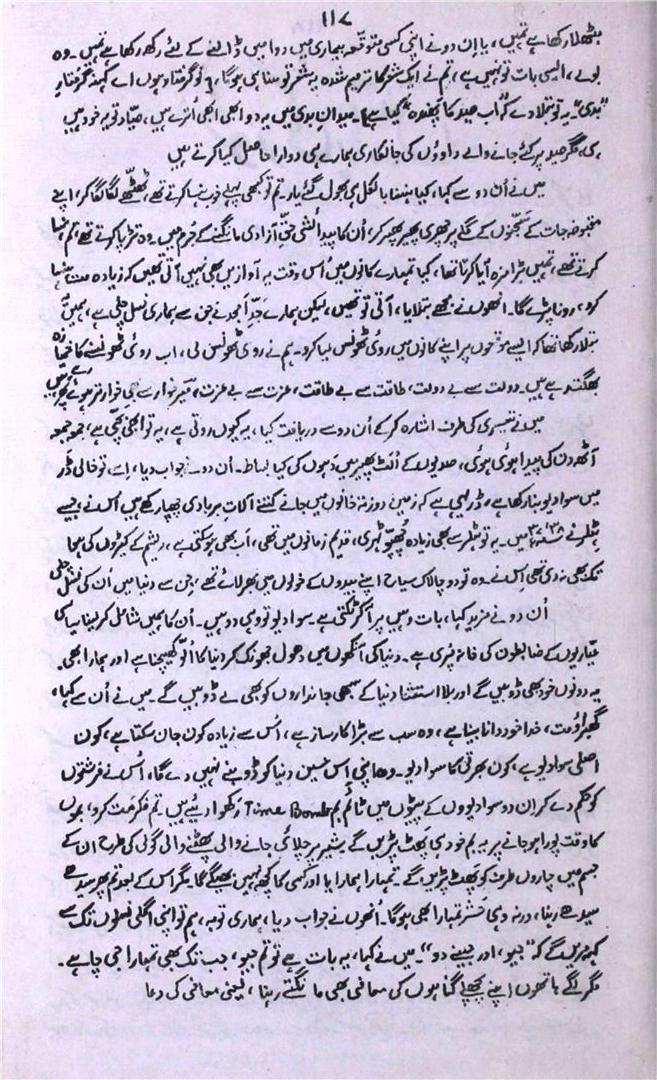 ۱۱۷
بٹھلا رکھا ہے تمہیں، یا ان دو نے اپنی کسی متوقعہ بیماری میں دوا میں ڈالنے کے لئے رکھ رکھا ہے تمہیں۔ وہ
بولے، ایسی بات تو نہیں ہے، تم نے ایک شعر کا ترمیم شدہ یہ شعر تو سنا ہی ہوگا، (نو گرفتارو ہوں اے کہنہ گرفتارِ
بدی" یہ تو بتلا دے کہ "اب صید کا پھندہ" کیا ہے)۔ میدانِ بدی میں یہ دو ابھی ابھی اُترے ہیں، صیاد تو یہ خود ہیں
ہی، مگر صید پر کئے جانے والے داؤں کی جانکاری ہمارے ہی دوارا حاصل کیا کرتے ہیں
میں نے اُن دو سے کہا، کیا ہنسنا بالکل ہی بھول گئے یار۔ تم تو کبھی پہلے خوب ہنسا کرتے تھے، ٹھٹھے لگا لگا کر، اپنے
مقبوضہ جات کے بچوں کے گلے پر چھری پھیر پھیر کر، اُن کا پیدائشی حق آزادی مانگنے کے جرم میں۔ وہ تڑپا کرتے تھے، تم ہنسا
کرتے تھے، تمہیں بڑا مزہ آیا کرتا تھا، کیا تمہارے کانوں میں اُس وقت یہ آوازیں بھی نہیں آتی تھیں کہ زیادہ مت ہنسا
کرو، رونا پڑے گا۔ انھوں نے مجھے بتلایا، آتی تو تھیں، لیکن ہمارے جدِ امجد نے جن سے ہماری نسل چلی ہے، ہمیں
بتلا رکھا تھا کہ ایسے موقعوں پر اپنے کانوں میں روئی ٹھونس لیا کرو۔ ہم نے روئی ٹھونس لی، اب روئی ٹھونسنے کا خمیازہ
بھگت رہے ہیں۔ دولت سے بے دولت، طاقت سے بے طاقت، عزت سے بے عزت، خوار تر ہوئے پھر رہے ہیں
میں نے تیسری کی طرف اشارہ کر کے اُن دو سے دریافت کیا، یہ کیوں روتی ہے، یہ تو ابھی بچی ہے، جمعہ جمعہ
آٹھ دن کی پیدا ہوئی ہوئی، صدیوں کے اُلٹ پھیر میں دنوں کی کیا بساط۔ ان دو نے جواب دیا، اسے تو خالی ڈر
میں سوا دیو بنا رکھا ہے، ڈر یہی ہے کہ زمین دوز تہ خانوں میں جانے کتنے آلاتِ بربادی چھپا رکھے ہیں اس نے، جیسے
ہٹلر نے میں۔ یہ تو ہٹلر سے بھی زیادہ ٹھہری، قدیم زمانوں میں تھی، اب بھی ہو سکتی ہے، ریشم کے کیڑوں کی ہوا
تک بھی نہ دی تھی اس نے۔ وہ تو دو چالاک سیاح اپنے بیدوں کے خولوں میں بھر لائے تھے، جن سے دنیا میں اُن کی نسل چلی
اُن دو نے مزید کہا، بات وہیں پر آ کر ٹکتی ہے سوا دیو تو وہی دو ہیں۔ اُن کا ہمیں شامل کر لینا سیاسی
عیاریوں کے ضابطوں کی خانہ پُری ہے۔ دنیا کی آنکھوں میں دھول جھونک کر دنیا کا اُلو کھینچنا ہے اور ہمارا بھی۔
یہ دونوں خود بھی ڈوبیں گے اور بلا استثنا دنیا کے سبھی جانداروں کو بھی لے ڈوبیں گے۔ میں نے اُن سے کہا،
گھبراؤ مت، خدا خود دانا بینا ہے، وہ سب سے بڑا کارساز ہے، اُس سے زیادہ کون جان سکتا ہے، کون
اصلی سوا دیو ہے، کون بھرتی کا سوا دیو۔ وہ اپنی اس حسین دنیا کو ڈوبنے نہیں دے گا، اُس نے فرشتوں
کو حکم دے کر ان دو سوا دیووں کے پیٹوں میں ٹائم بم Time Bomb رکھوا دیئے ہیں۔ تم فکر مت کرو، بموں
کا وقت پورا ہو جانے پر یہ بم خود ہی پھٹ پڑیں گے شیر پر چلائی جانے والی پھٹنے والی گولی کی طرح ان کے
جسم میں چاروں طرف کو پھٹ پڑیں گے۔ تمہارا ہمارا یا اور کسی کا کچھ نہیں بگڑے گا۔ مگر اس کے بعد تم پھر سیدھے
سیدھے رہنا، ورنہ وہی حشر تمہارا بھی ہوگا۔ اُنھوں نے جواب دیا، ہماری توبہ، ہم تو اپنی اگلی نسلوں تک سے
کہہ مریں گے کہ "جیو، اور جینے دو"۔ میں نے کہا، یہ بات ہے تو تم جیو، جب تک بھی تمہارا جی چاہے۔
مگر لگے ہاتھوں اپنے پچھلے گناہوں کی معافی بھی مانگتے رہنا، یعنی معافی کی دعا